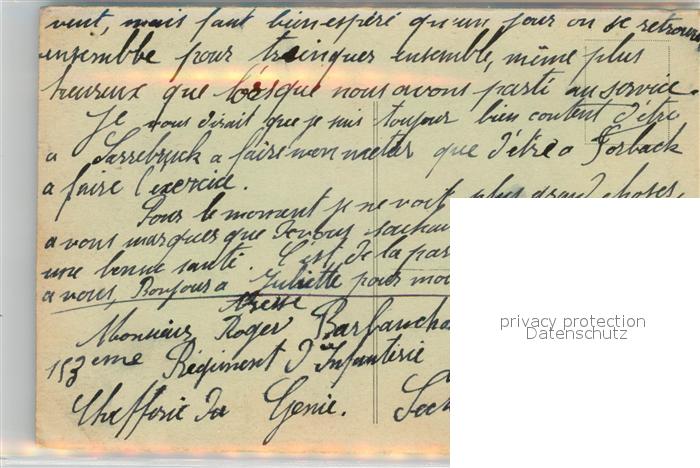 vent, mais faut bien espéré qu'un jour on se retrouve
ensembbe pour trainquer ensemble, même plus
heureux que lorsque nous avons parti au service.
Je vous dirait que je suis toujour bien content d'être
a Sarrebruck a faire mon metier que d'être a Forback
a faire l'exercice.
Pour le moment je ne voit plus grand choses
a vous marques que de vous
une bonne santé. C'est de la par
a vous, Bonjour a Juliette pour moi
Adresse
Monsieur Roger
153ème Régiment d'Infanterie
Chefferie du Genie.
privacy protection
Datenschutz